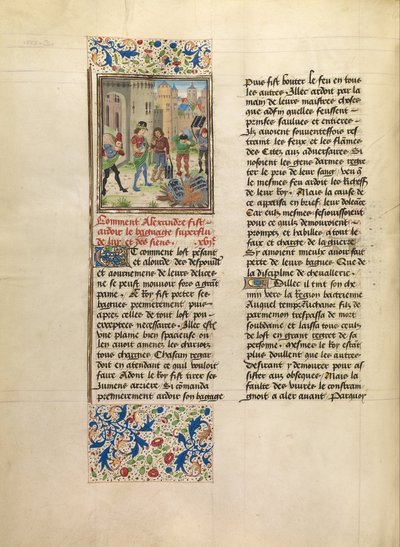 Comment Alexandre fist
ardoir le bagaige superflu
de luy et des siens. xvj.e
Et comment lost pesant
et alourde des despoulles
et aournemens de leurs delices
ne se peust mouvoir fors a grant
paine. Le Roy fist porter ses
bagues premierement puis
apres celles de tout lost
exceptees necessaires. Illec est
une plaine bien spacieuse ou
len avoit amenez les chariotz
tous chargies Chascun regar
doit en attendant ce quil vouloit
faire Adont le Roy fist tirer ses
Jumens arriere Si comanda
premierement ardoir son bagage
Puis fist bouter le feu en tous
les autres. Illec ardoit par la
main de leurs maistres choses
que adfin quelles feussent
prinses saulves et entieres
Ilz avoient souventeffois res
traint les feux et les flames
des Citez aux adversaires Si
nosoient les gens darmes regre
ter le pris de leur sang veu que
le mesmes feu ardoit les Richesses
de leur Roy. Mais la cause de
ce appaisa en brief leur doleance
Car eulx mesmes sesjouissoient
pour ce quilz demouroient
promptz et habilles a tout le
faix et charge de la guerre
Sy avoient mieulx avoir fait
perte de leurs bagues Que de
la discipline de chevallerie.
D illec il tint son che
min vers la Region bactrienne
Auquel temps filz de
parmenion trespassa de mort
soubdaine et laissa tous ceulx
de lost en grant regret de sa
personne. mesmes le Roy estoit
plus doullent que les autres
desirant y demourer pour as
sister aux obseques. Mais la
faulte des vivres le constraing
gnoit a aler avant Parquoy